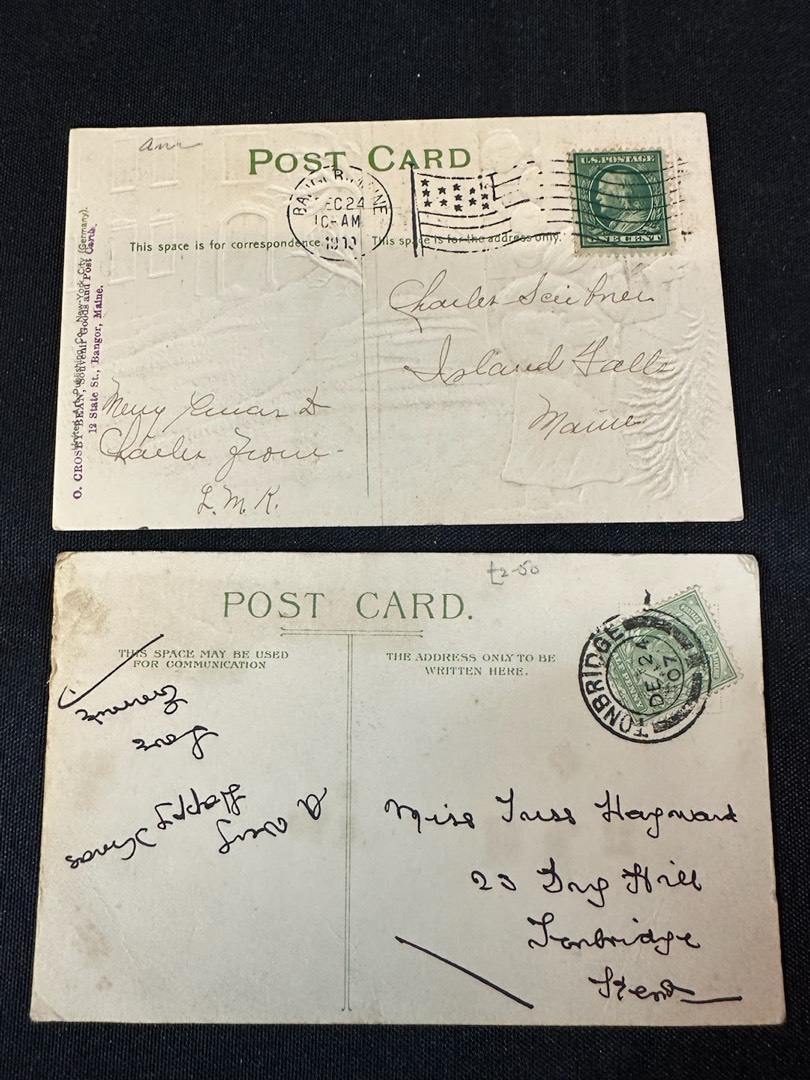 Ann
POST CARD
BANGOR, MAINE
DEC 24
10-AM
1910
U.S. POSTAGE
ONE CENT
This space is for correspondence.
This space is for the address only.
Charles Scribner
Island Falls
Maine
Merry Xmas
Charles From
L. M. K.
Art Publishing Co. New York City (Germany).
O. CROSBY BEAN, Souvenir Goods and Post Cards,
12 State St., Bangor, Maine.
£2-50
POST CARD.
THIS SPACE MAY BE USED
FOR COMMUNICATION
THE ADDRESS ONLY TO BE
WRITTEN HERE.
TONBRIDGE
DE 24
07
A Very
Happy Xmas
Love
Miss Hayward
23 Dry Hill
Tonbridge
Kent